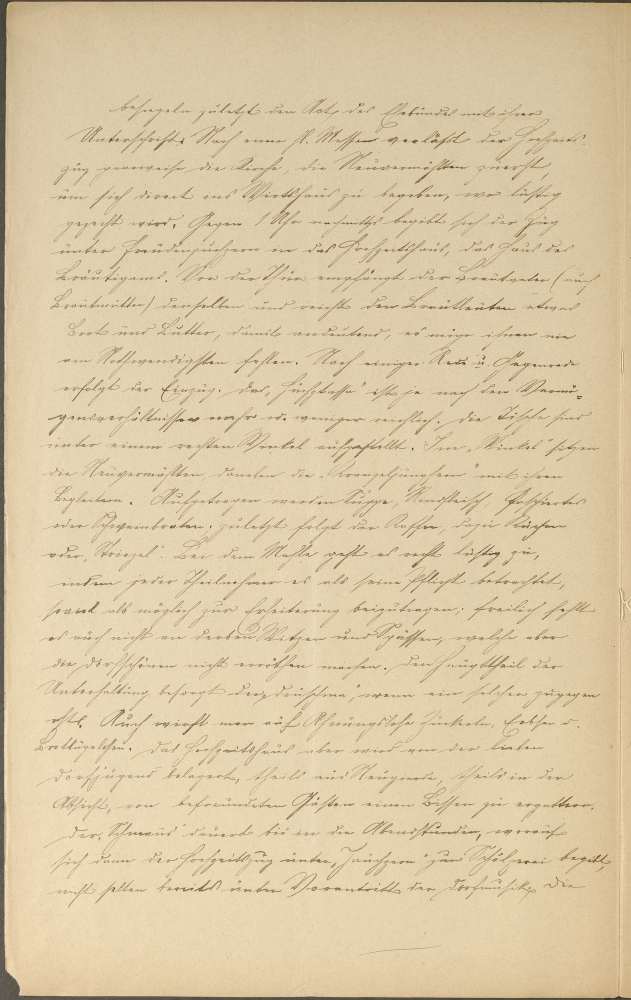 besiegeln zuletzt den Act des Ehebundes mit ihrer
Unterschrift. Nach einer hl. Messe verläßt der Hochzeits-
zug paarweise die Kirche, die Neuvermählten zuerst,
um sich direct ins Wirtshaus zu begeben, wo lustig
gezecht wird. Gegen 1 Uhr nachmittgs begibt sich der Zug
unter Freudenjuchzern in das Hochzeitshaus, das Haus des
Bräutigams. Vor der Thür empfängt der Brautvater (auch
Brautmutter) denselben und reicht den Brautleuten etwas
Brot und Butter, damit andeutend, es möge ihnen nie
am Nothwendigsten fehlen. Nach einiger Rede u. Gegenrede
erfolgt der Einzug. Das ist je nach den Vermö-
gensverhältnissen mehr od. weniger reichlich. Die Tische sind
unter einem rechten Winkel aufgestellt. Im "Winkel" sitzen
die Neuvermählten, daneben die mit ihren
Begleitern. Aufgetragen werden Suppe, Rindfleisch,
oder Schweinbraten. Zuletzt folgt der Kaffee, dazu Kuchen
oder "Striezel". Bei dem Mahle geht es recht lustig zu,
indem jeder Theilnehmer es als seine Pflicht betrachtet,
soviel als möglich zur Erheiterung beizutragen; freilich fehlt
es auch nicht an derben Witzen und Spässen, welche aber
die Dorfschönen nicht erröthen machen. Den Haupttheil der
Unterhaltung besorgt der wenn ein solcher zugegen
ist. Auch wirft man auf Ahnungslose Zuckerln, Erbsen u.
Brotkügelchen. Das Hochzeitshaus aber wird von der lieben
Dorfjugend belagert, theils aus Neugierde, theils in der
Absicht, von befreundeten Gästen einen Bissen zu ergattern.
Der "Schmaus" dauert bis in die Abendstunden, worauf
sich dann der Hochzeitszug unter "Jauchzern" zur begibt,
nicht selten bereits unter Vorantritt der Dorfmusik. Die